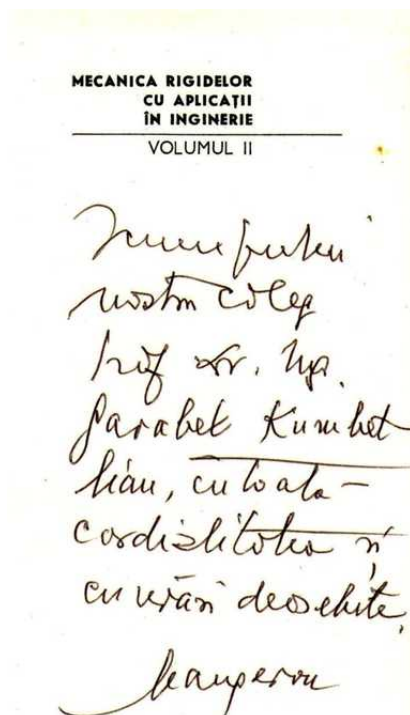 MECANICA RIGIDELOR
CU APLICAȚII
ÎN INGINERIE
VOLUMUL II
nostru coleg
Prof dr. ing.
Garabet Kumbet
lian, cu toata
cordialitatea și
cu urări deosebite,
Mangeron